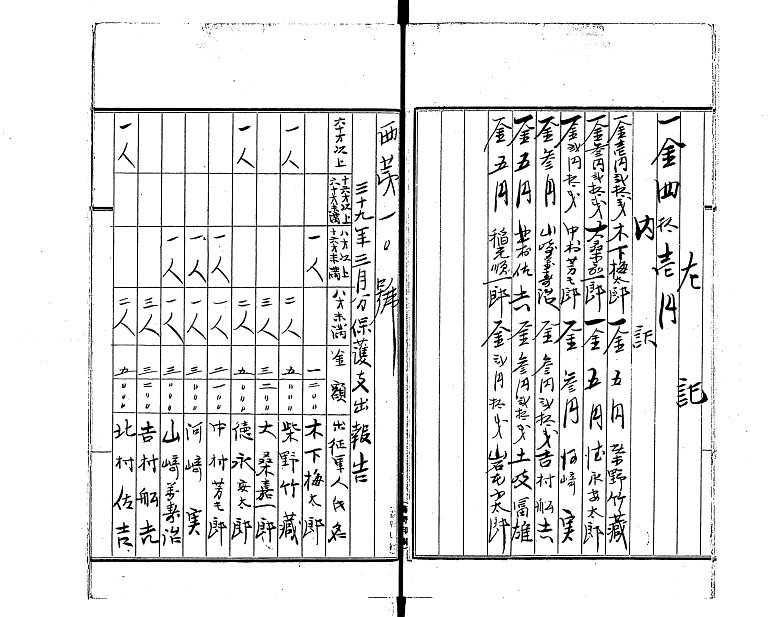 左記
一金四拾壱円
内訳
一金壱円弐拾戋 木下梅太郎
一金五円 柴野竹蔵
一金参円弐拾戋 大桑嘉一郎
一金五円 徳永安太郎
一金弐円拾戋 中村芳太郎
一金参円 河崎実
一金参円 山崎万寿治
一金参円弐拾戋 吉村船吉
一金五円 北村佐吉
一金参円拾戋 土岐冨雄
一金五円 稲光順一郎
一金弐円拾戋
西第一〇号
三十九年三月分保護支出報告
六十才以上
十六才以上六十才未満
八才以上十六才未満
八才未満
金額
出征軍人氏名
一人 一、二〇〇 木下梅太郎
一人 二人 五、〇〇〇 柴野竹藏
三人 三、二〇〇 大桑嘉一郎
一人 二人 五、〇〇〇 徳永安太郎
一人 一人 二、一〇〇 中村芳太郎
一人 一人 三、〇〇〇 河崎実
一人 一人 三、〇〇〇 山崎万寿治
三人 三、二〇〇 吉村船吉
一人 二人 五、〇〇〇 北村佐吉